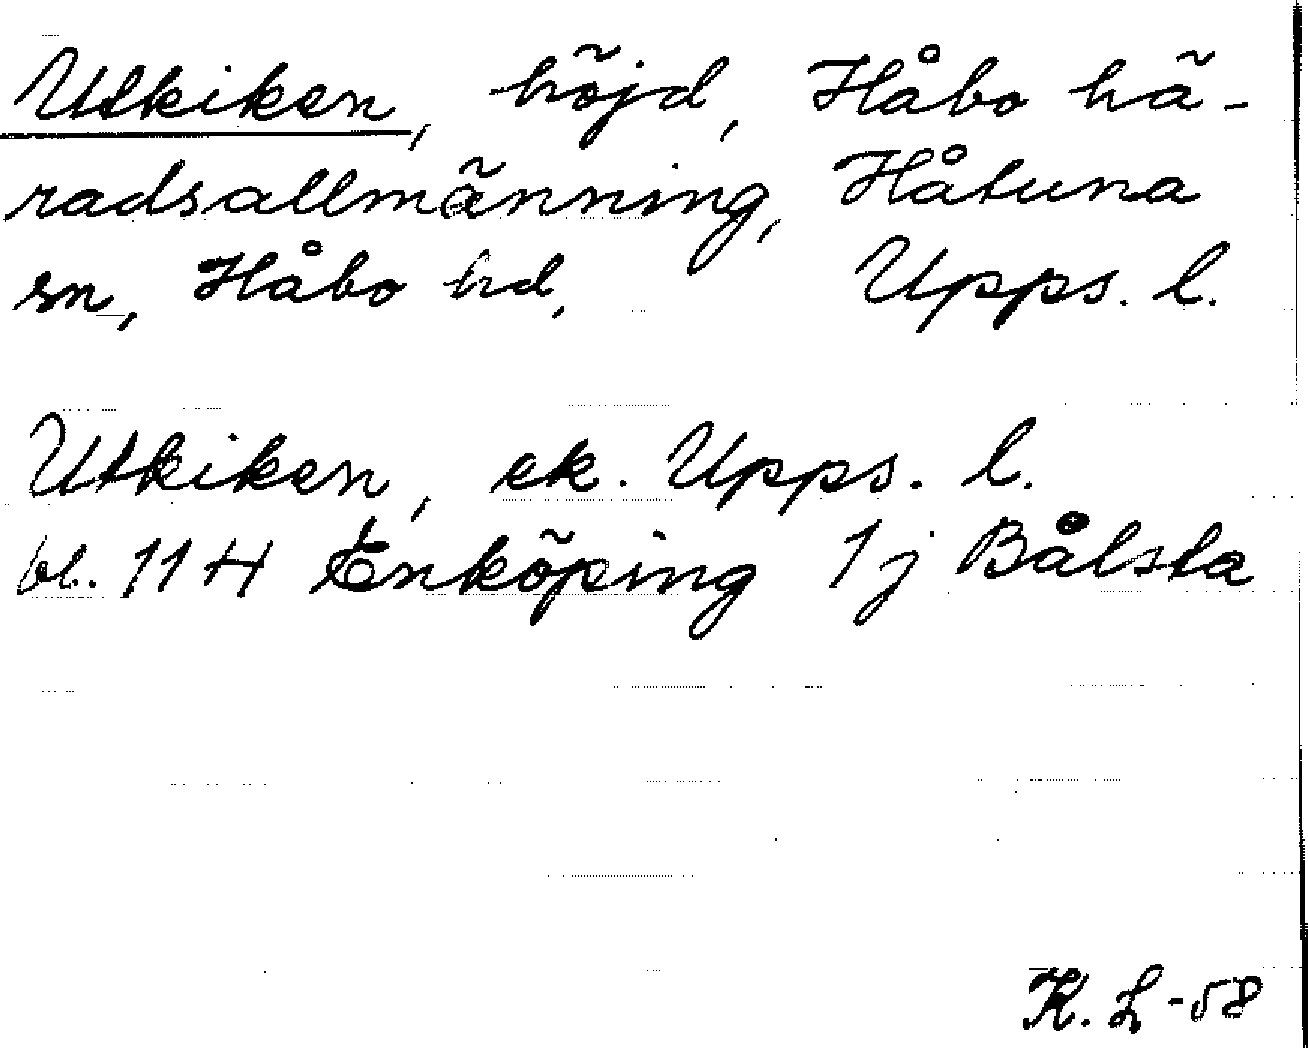 Utkiken, höjd, Håbo hä-
radsallmänning, Håtuna
sn, Håbo hd, Upps. l.
Utkiken, ek. Upps. l.
bl. 11 H Enköping 1j Bålsta
K. L -58